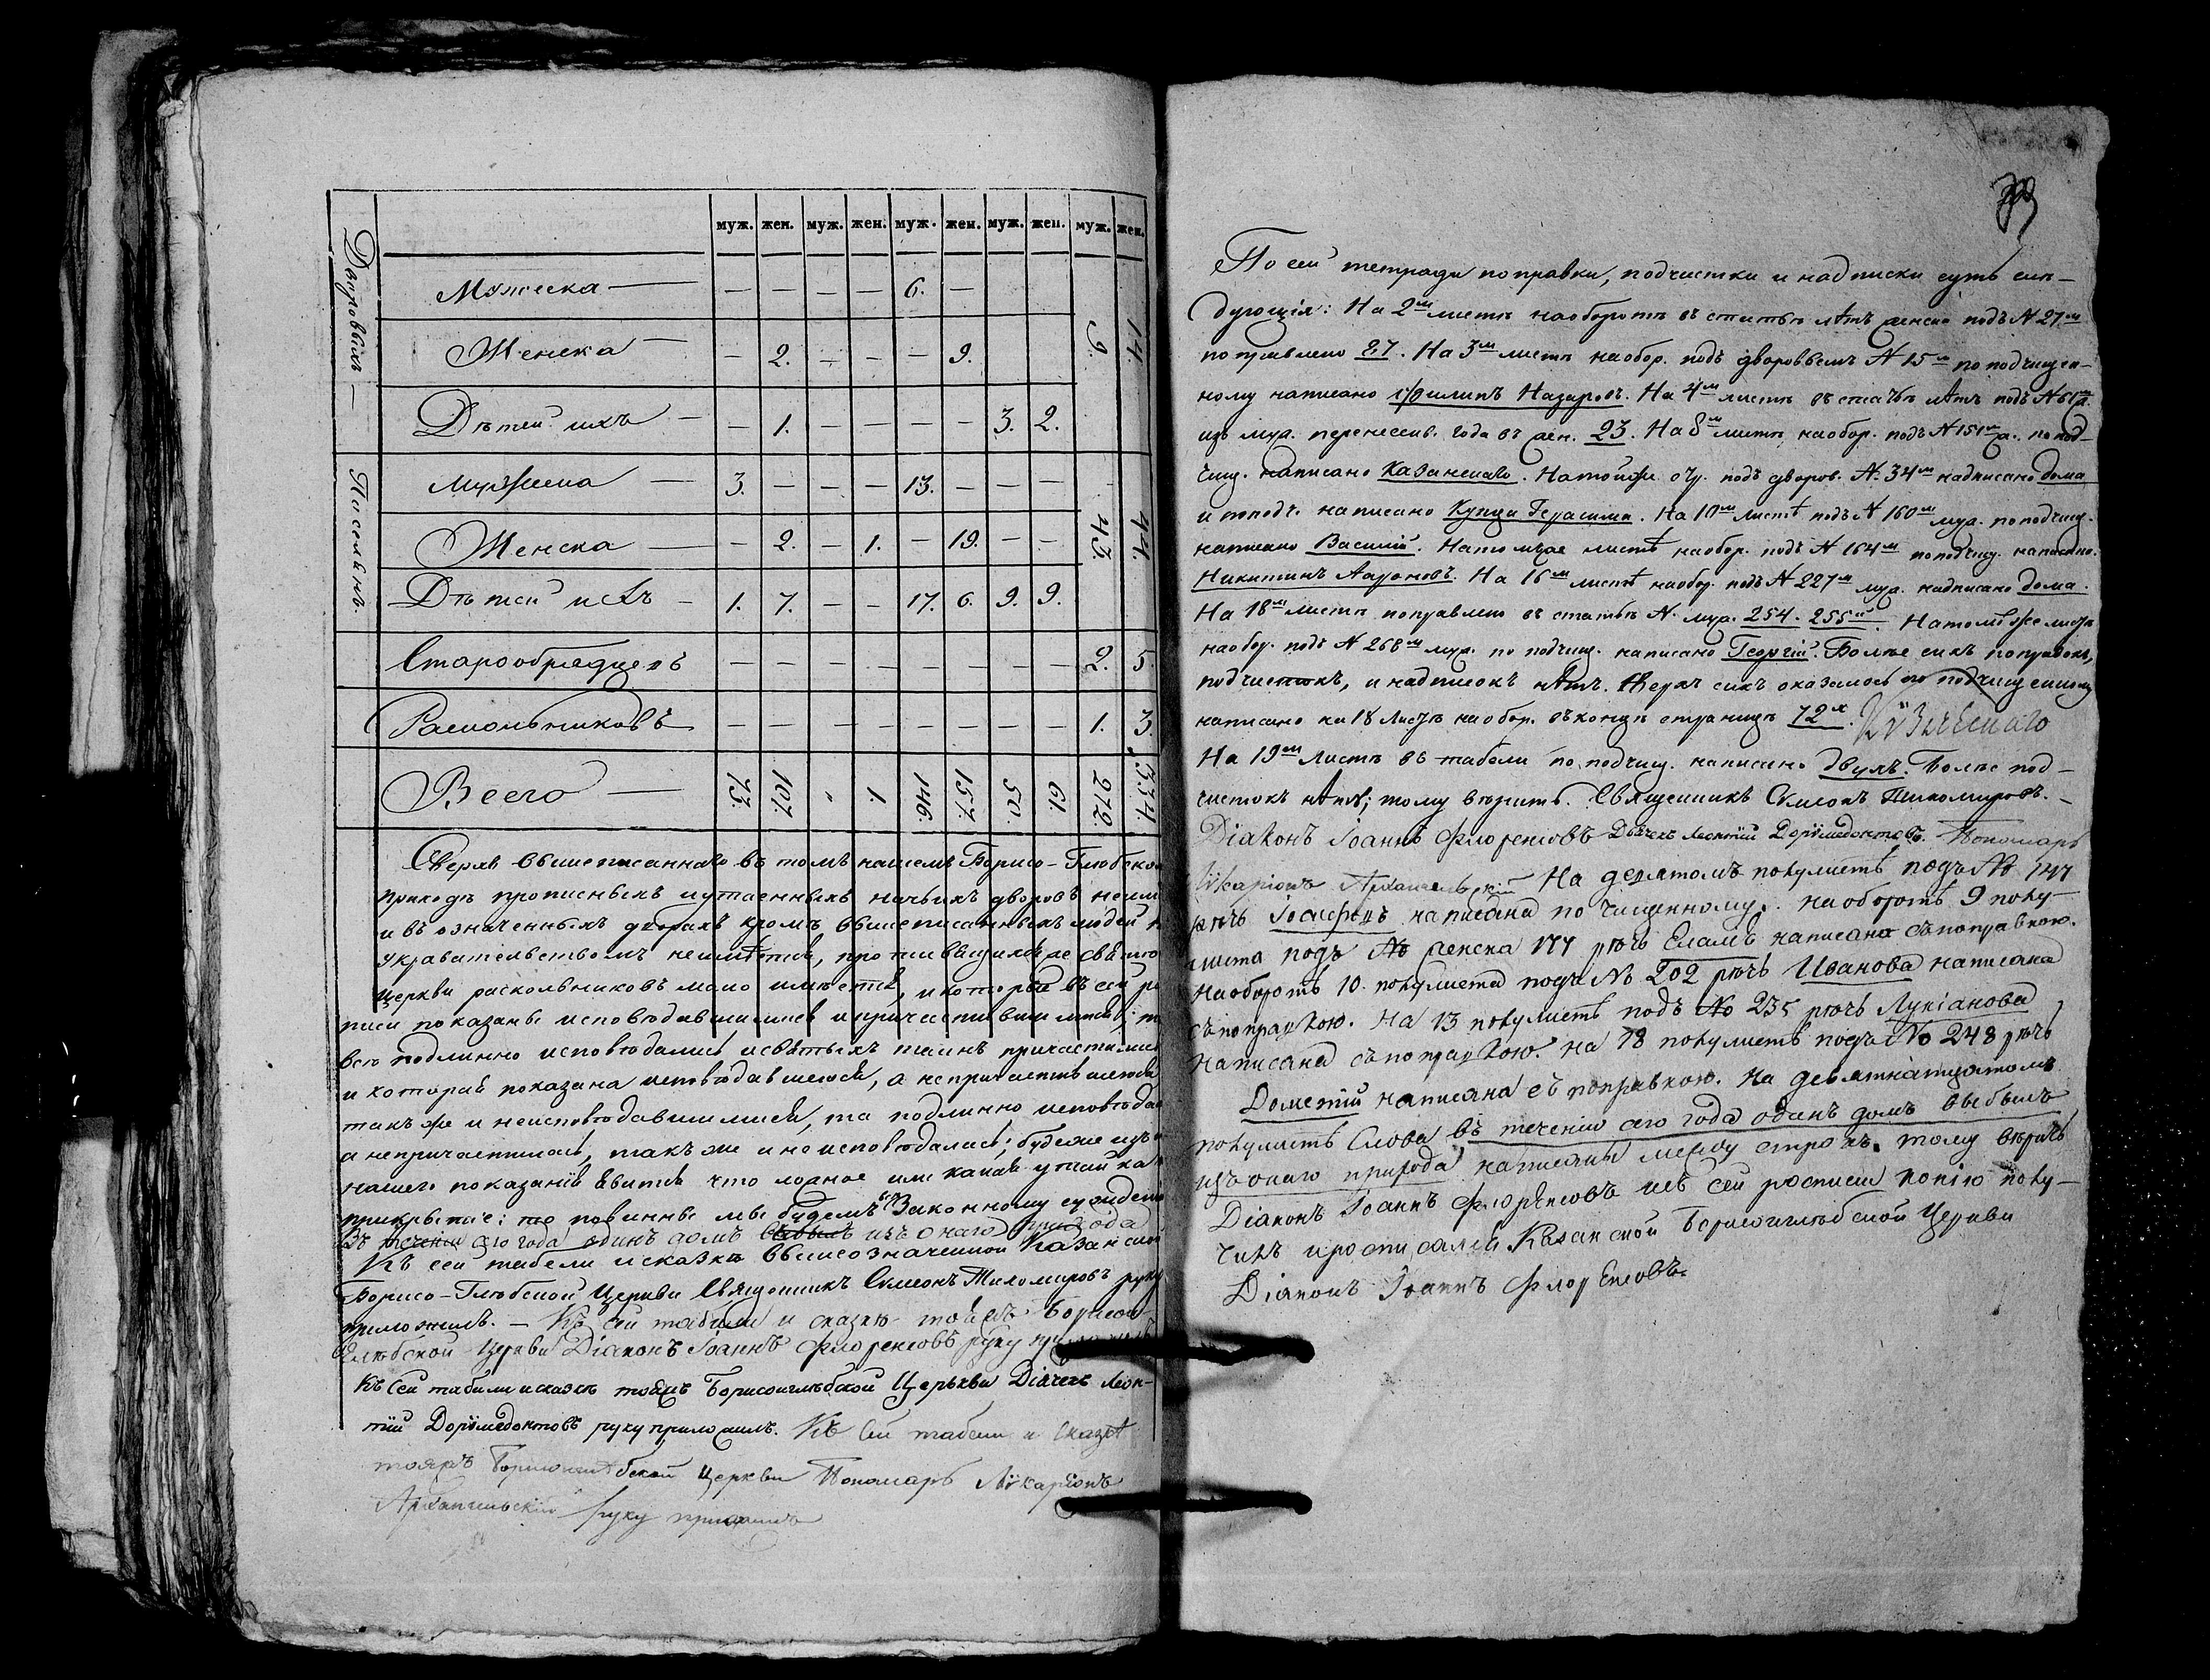 муж. жен. муж. жен. муж. жен. муж. жен. муж. жен.
Дворовыхъ —
Мужеска — — — — — 6. —
Женска — — 2. — — — 9.
9. 14.
Дѣтей ихъ — — 1. — — — — 3. 2.
Поселянъ.
Мужеска — 3. — — — 13. — — —
Женска — — 2. — 1. — 19. — —
43. 44.
Дѣтей ихъ — 1. 7. — — 17. 6. 9. 9.
Старообрядцевъ — — — — — — — — 2. 5.
Раскольниковъ — — — — — — — — 1. 3.
Всего — 73. 107. „ 1. 146. 157. 50. 61. 272. 334.
Сверхъ вышеписаннаго въ томъ нашемъ Борисо-Глѣбско
приходѣ прописныхъ и утаенныхъ ничьихъ дворовъ неим
и въ означенныхъ дворахъ кромѣ вышеписанныхъ людей
укравательствомъ неимѣется, противящихъ же святой
церкви раскольниковъ мало имѣется, и которые въ сей ро
писи показаны исповѣдавшимися и причастившимися, т
всѣ подлинно исповѣдались и святыхъ таинъ причастились
и которая показана исповѣдавшеюся, а непричастившеюся
такъ же и неисповѣдавшимися, та подлинно исповѣда
а непричастилась, такъ же и не исповѣдалась; буде же изъ
нашего показанія явится что ложное или какая утайка
прикрытіе: то повинны мы будемъ Законному сужденію
Въ теченіи сего года одинъ домъ выбылъ изъ онаго прихода
Къ сей табели и сказкѣ вышеозначенной Казанской
Борисо-Глѣбской Церкви Священникъ Симеонъ Тихомировъ руку
приложилъ. — Къ сей табели и сказкѣ тойже Борисо-
глѣбской Церкви Діаконъ Іоаннъ Флоренсовъ руку приложилъ
Къ сей табели и сказкѣ тояжъ Борисоглѣбской Церькви Діячекъ Леон-
тій Доримедонтовъ руку приложилъ. Къ сей табели и сказкѣ
тояжъ Борисоглѣбской Церкви Пономарь Иларіонъ
Архангельскій руку приложилъ
По сей тетради поправки, подчистки и надписки суть слѣ-
дующія: На 2м листѣ наоборотѣ въ статьѣ лѣтъ женска подъ N 27м
поправлено 27. На 3м листѣ наобор. подъ дворовымъ N 15м по подчищен-
ному написано Филипъ Назаровъ. На 4м листѣ въ статьѣ лѣтъ подъ N 61м
изъ муж. перенесен. года въ жен. 23. На 8м листѣ наобор. подъ N 151м по под-
чищ. написано Казанскаго. На тойже стр. подъ дворов. N. 34м надписано дома
и по подч. написано Купца Герасима. На 10м листѣ подъ N 160м муж. по подчищ.
написано Василій. На томъже листѣ наобор. подъ N 164м по подчищ. написано
Никитинъ Аароновъ. На 16м листѣ наобор. подъ N 227м муж. надписано дома.
На 18м листѣ поправлено въ статьѣ N. муж. 254. 255й. На томъ же листѣ
наобор. подъ N 268м муж. по подчищ. написано Георгій. Болѣе сихъ поправокъ,
подчистокъ, и надписокъ нѣтъ. Сверхъ сихъ оказалось по подчищенному
написано на 18 листѣ наобор. въ концѣ страницы 72х.
На 19м листѣ въ табели по подчищ. написано двухъ. Болѣе под-
чистокъ нѣтъ; тому вѣрить. Священникъ Симеонъ Тихомировъ. —
Діаконъ Іоаннъ Флоренсовъ Дьячекъ Леонтій Доримедонтовъ. Пономарь
Иларіонъ Архангельскій На девятомъ полулистѣ подъ № 147
рѣчь Іосифовъ написана по чищенному. на оборотѣ 9 полу-
листа подъ № женска 177 рѣчь Еламъ написана съ поправкою.
На оборотѣ 10. полулиста подъ № 202 рѣчь Иванова написана
съ поправкою. На 13 полулистѣ подъ № 235 рѣчь Лукіанова
написана съ поправкою. на 18 полулистѣ подъ № 248 рѣчь
Дометій написана съ поправкою. На девятнатцатомъ
полулистѣ Слова въ теченіи сего года одинъ домъ выбылъ
изъ онаго прихода написаны между строкъ. тому вѣрить
Діаконъ Іоаннъ Флоренсовъ исъ сей росписи копію полу-
чилъ и росписался Казанской Борисоглѣбской Церкви
Діаконъ Іоаннъ Флоренсовъ.